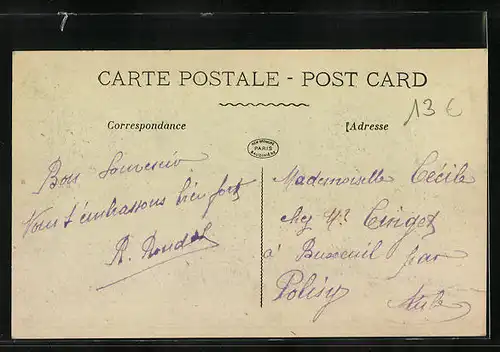 CARTE POSTALE - POST CARD
Correspondance
Adresse
13 €
PARIS
Bon Souvenir
Nous t'embrassons bien fort
Mademoiselle Cécile
chez Mr
à Buxeuil par
Polisy Aube